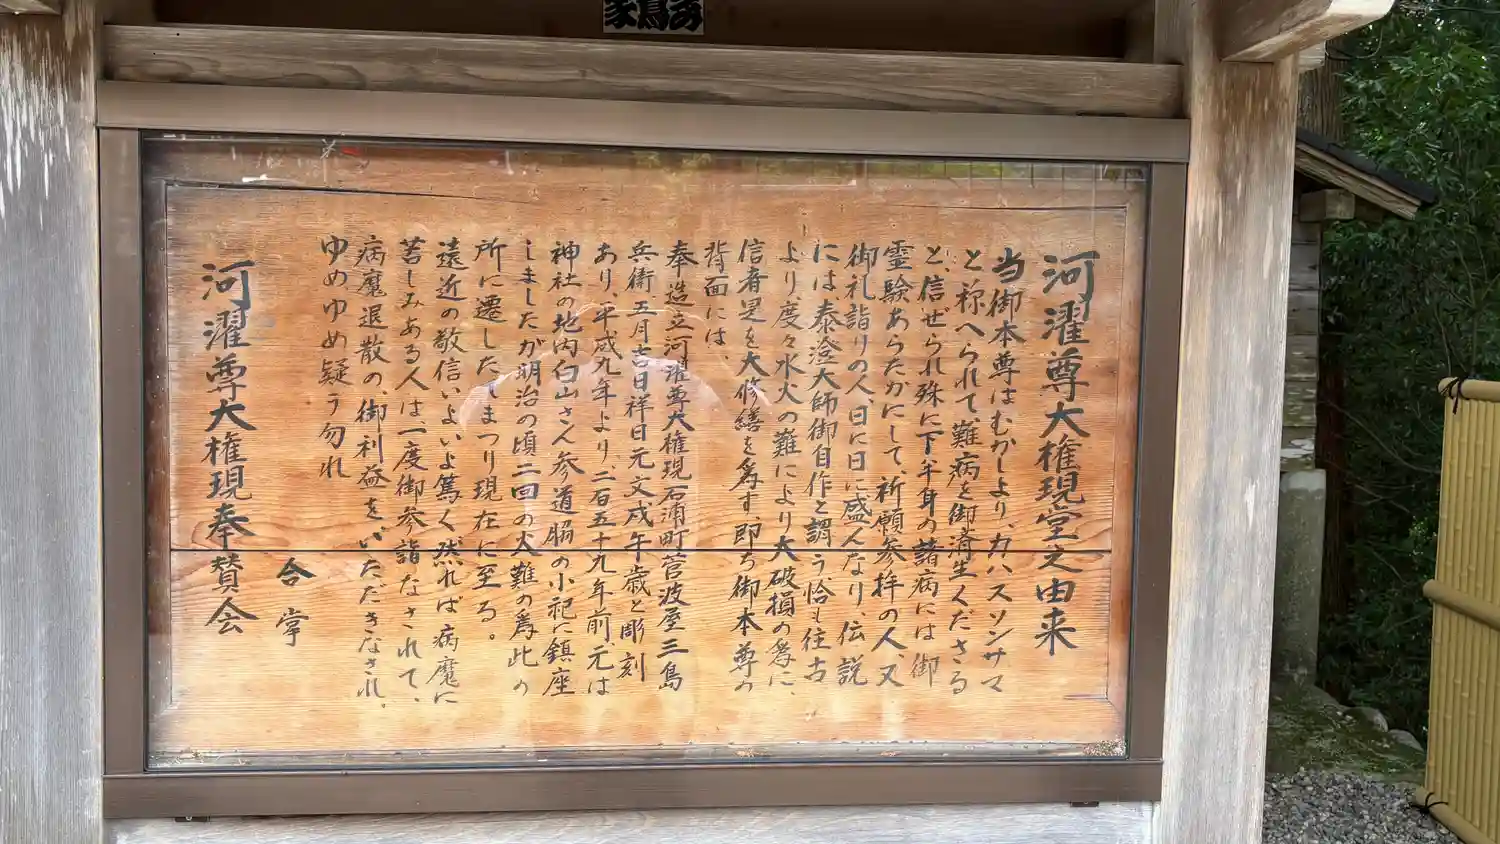 河濯尊大権現堂之由来
当御本尊はむかしより、カハスソンサマ
と称へられて難病を御済生くださる
と、信ぜられ殊に下半身の諸病には御
霊験あらたかにして、祈願参拝の人、又
御礼詣りの人、日に日に盛んなり、伝説
には泰澄大師御自作と謂う恰も往古
より、度々水火の難により大破損の為に、
信者是を大修繕を為す、即ち御本尊の
背面には、
奉造立河濯尊大権現石浦町菅波屋三島
兵衛五月吉日祥日元文戊午歳と彫刻
あり、平成九年より、二百五十九年前元は
神社の地内白山さん参道脇の小祀に鎮座
しましたが明治の頃二回の火難の為此の
所に遷したてまつり現在に至る。
遠近の敬信いよいよ篤く然れば病魔に
苦しみある人は、一度御参詣なされて、
病魔退散の、御利益を、いただきなされ。
ゆめゆめ疑う勿れ
合掌
河濯尊大権現奉賛会